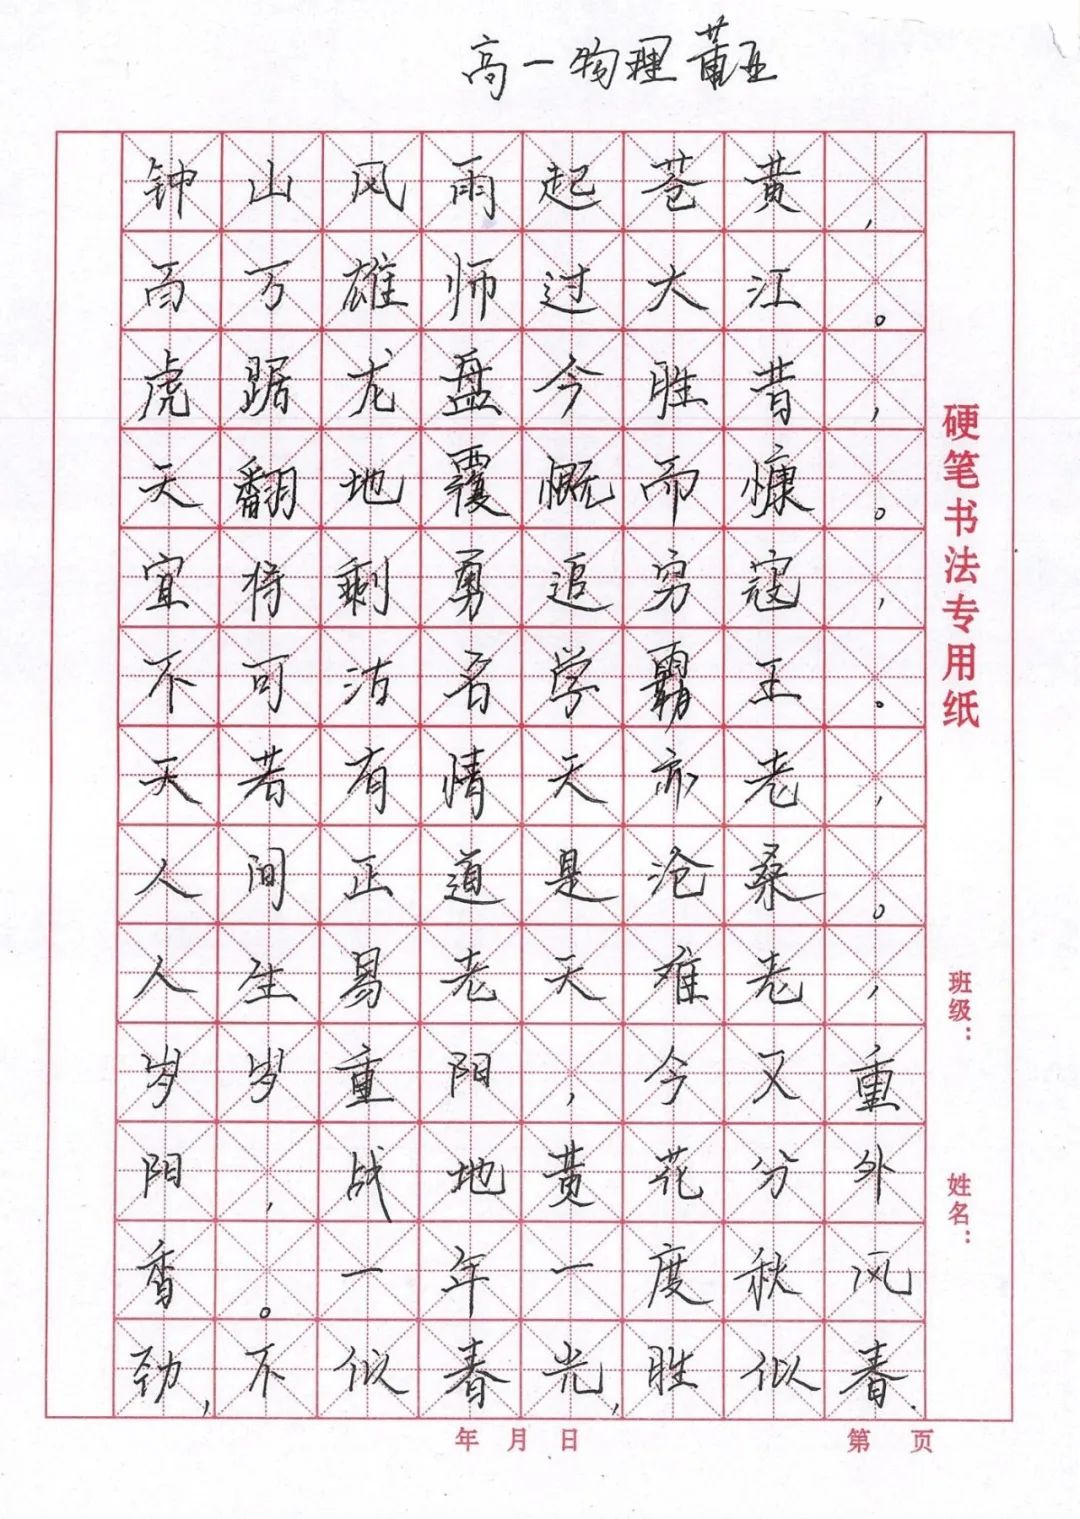 高一物理 董亚
钟山风雨起苍黄，
百万雄师过大江。
虎踞龙盘今胜昔，
天翻地覆慨而慷。
宜将剩勇追穷寇，
不可沽名学霸王。
天若有情天亦老，
人间正道是沧桑。
人生易老天难老，
岁岁重阳，今又重
阳，战地黄花分外
香。一年一度秋风
劲，不似春光，胜似春.
硬笔书法专用纸
班级：
姓名：
年 月 日
第 页